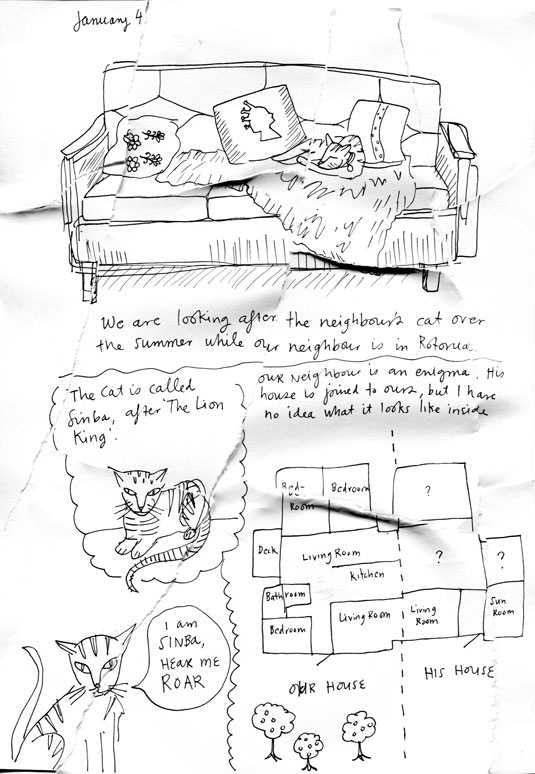 January 4
We are looking after the neighbour's cat over
the summer while our neighbour is in Rotorua.
The Cat is called
Sinba, after 'The Lion
King'.
our Neighbour is an enigma. His
house is joined to ours, but I have
no idea what it looks like inside
Bed-
Room
Bedroom
?
Deck
Living Room
Kitchen
?
?
Bathroom
Bedroom
Living Room
Living
Room
Sun
Room
OUR HOUSE
HIS HOUSE
I am
SINBA,
HEAR ME
ROAR